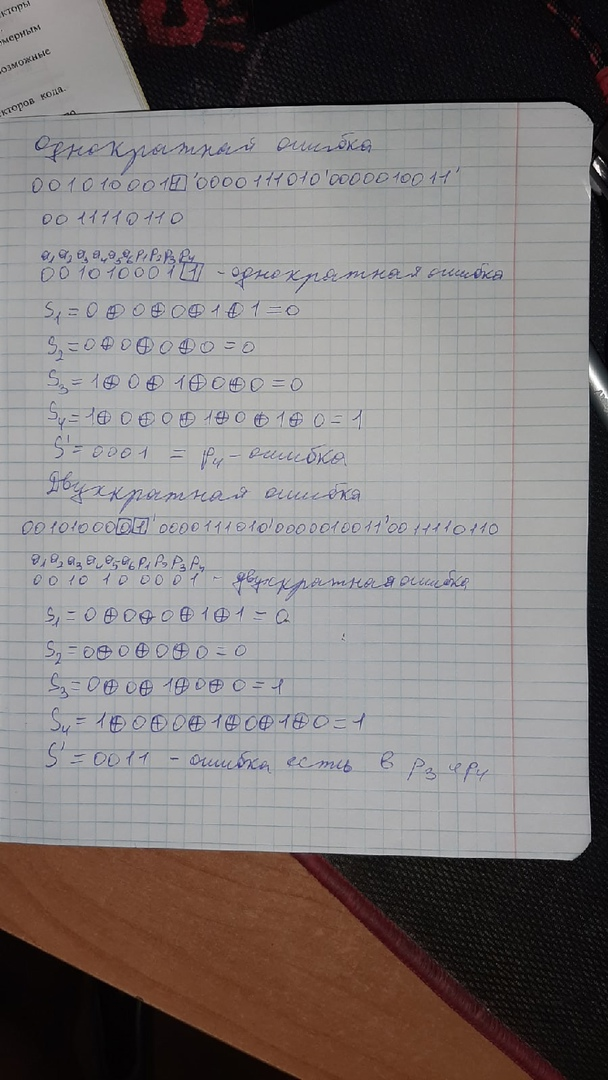 кторы
мерным
озможные
екторов кода.
Однократная ошибка
0010100011'0000111010'0000010011'
0011110110
a₁a₂a₃a₄a₅a₆P₁P₂P₃P₄
0010100011 - однократная ошибка
S₁ = 0⊕0⊕0⊕1⊕1=0
S₂=0⊕0⊕0⊕0=0
S₃=1⊕0⊕1⊕0⊕0=0
S₄=1⊕0⊕0⊕1⊕0⊕1⊕0=1
S'=0001 = P₄ - ошибка
Двухкратная ошибка
0010100001'0000111010'0000010011'0011110110
a₁a₂a₃a₄a₅a₆P₁P₂P₃P₄
0010100001 - двухкратная ошибка
S₁=0⊕0⊕0⊕1⊕1=0
S₂=0⊕0⊕0⊕0=0
S₃=0⊕0⊕1⊕0⊕0=1
S₄=1⊕0⊕0⊕1⊕0⊕1⊕0=1
S'=0011 - ошибка есть в P₃ и P₄